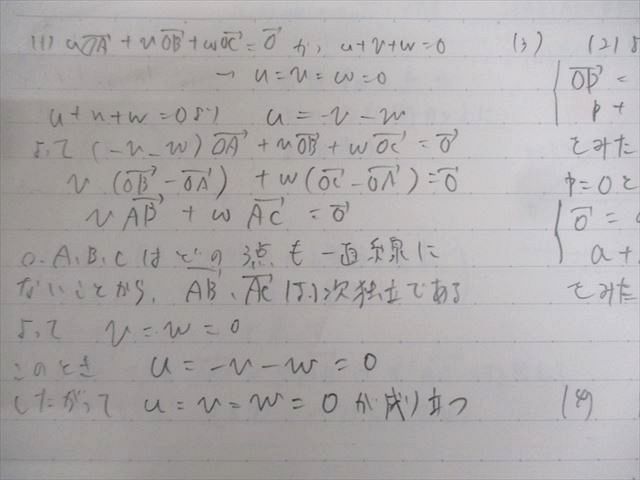 (1) uOA→ + vOB→ + wOC→ = 0→ か u+v+w=0
→ u=v=w=0
u+v+w=0より u=-v-w
よって (-v-w)OA→ + vOB→ + wOC→ = 0→
v(OB→-OA→) + w(OC→-OA→)=0→
vAB→ + wAC→ = 0→
O.A.B.Cはどの3点も一直線に
ないことから、AB→、AC→は1次独立である
よって v=w=0
このとき u=-v-w=0
したがって u=v=w=0が成り立つ
(3) (2)よ
OP→ =
p+
てみた
p=0と
0→ =
a+
てみた
(4)